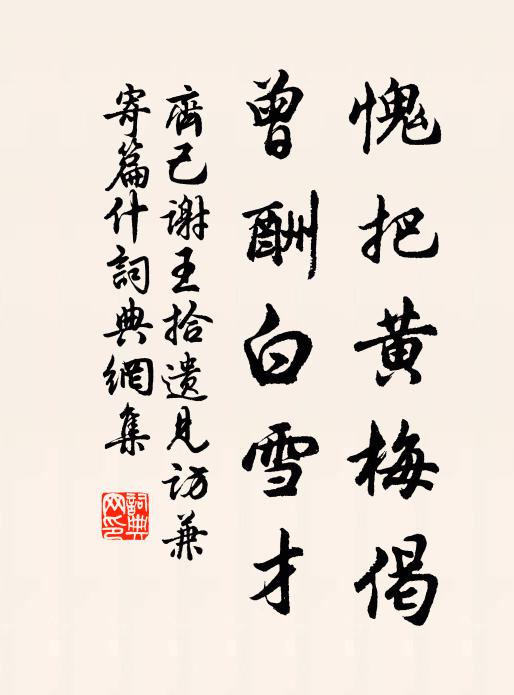 愧把黄梅偈
曾酬白雪才
齊己谢王拾遗見访兼
寄篇什詞典網集
詞典
网印